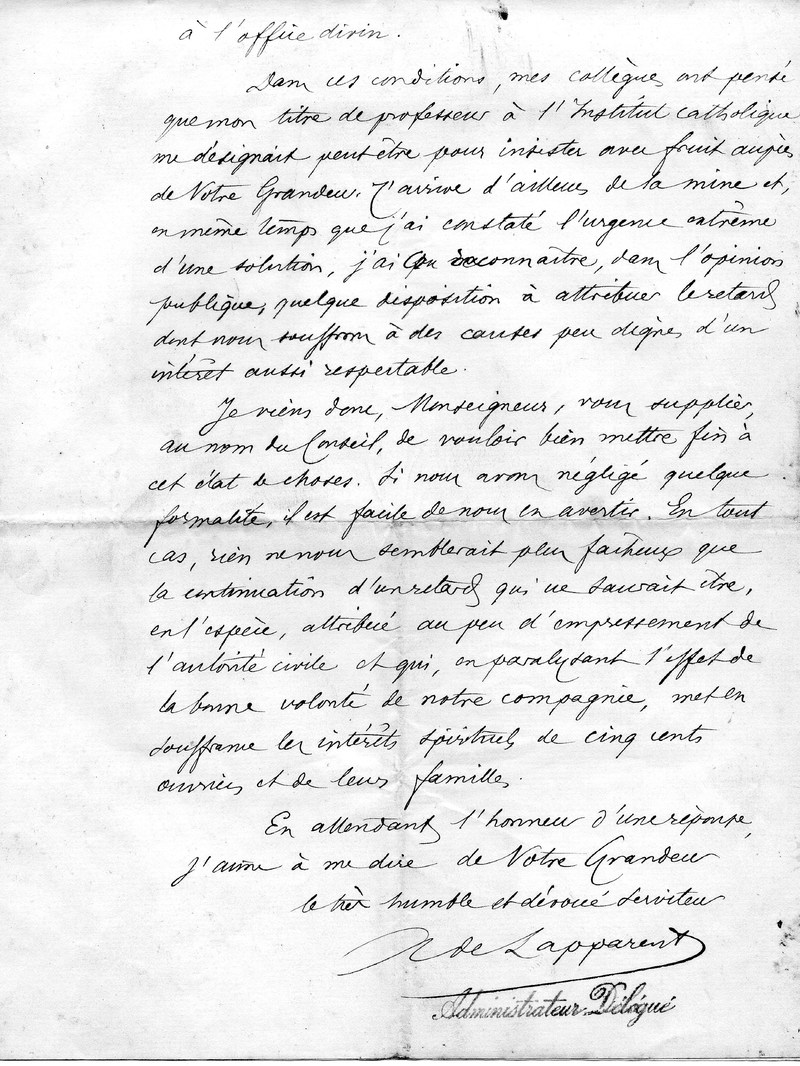 à l'office divin.
Dans ces conditions, mes collègues ont pensé
que mon titre de professeur à l'Institut catholique
me désignait peut être pour insister avec fruit auprès
de Notre Grandeur. J'arrive d'ailleurs de la mine et,
en même temps que j'ai constaté l'urgence extrême
d'une solution, j'ai connaître, dans l'opinion
publique, quelque disposition à attribuer le retard
dont nous souffrons à des causes peu dignes d'un
intérêt aussi respectable.
Je viens donc, Monseigneur, vous supplier,
au nom du Conseil, de vouloir bien mettre fin à
cet état de choses. Si nous avons négligé quelque
formalité, il est facile de nous en avertir. En tout
cas, rien ne nous semblerait plus fâcheux que
la continuation d'un retard qui ne saurait être,
en l'espèce, attribué au peu d'empressement de
l'autorité civile et qui, en paralysant l'effet de
la bonne volonté de notre compagnie, met en
souffrance les intérêts spirituels de cinq cents
ouvriers et de leurs familles.
En attendant l'honneur d'une réponse,
j'aime à me dire de Notre Grandeur
le très humble et dévoué serviteur
A de Lapparent
Administrateur-Délégué